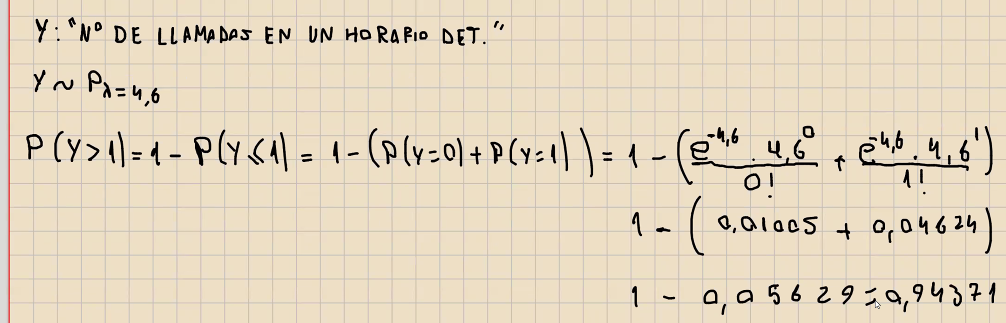 Y: "Nº DE LLAMADAS EN UN HORARIO DET."
Y ~ P λ=4,6
P(Y>1) = 1 - P(Y≤1) = 1 - (P(Y=0) + P(Y=1)) = 1 - (e^-4,6 . 4,6^0 / 0! + e^-4,6 . 4,6^1 / 1!)
1 - (0,01005 + 0,04624)
1 - 0,05629 = 0,94371